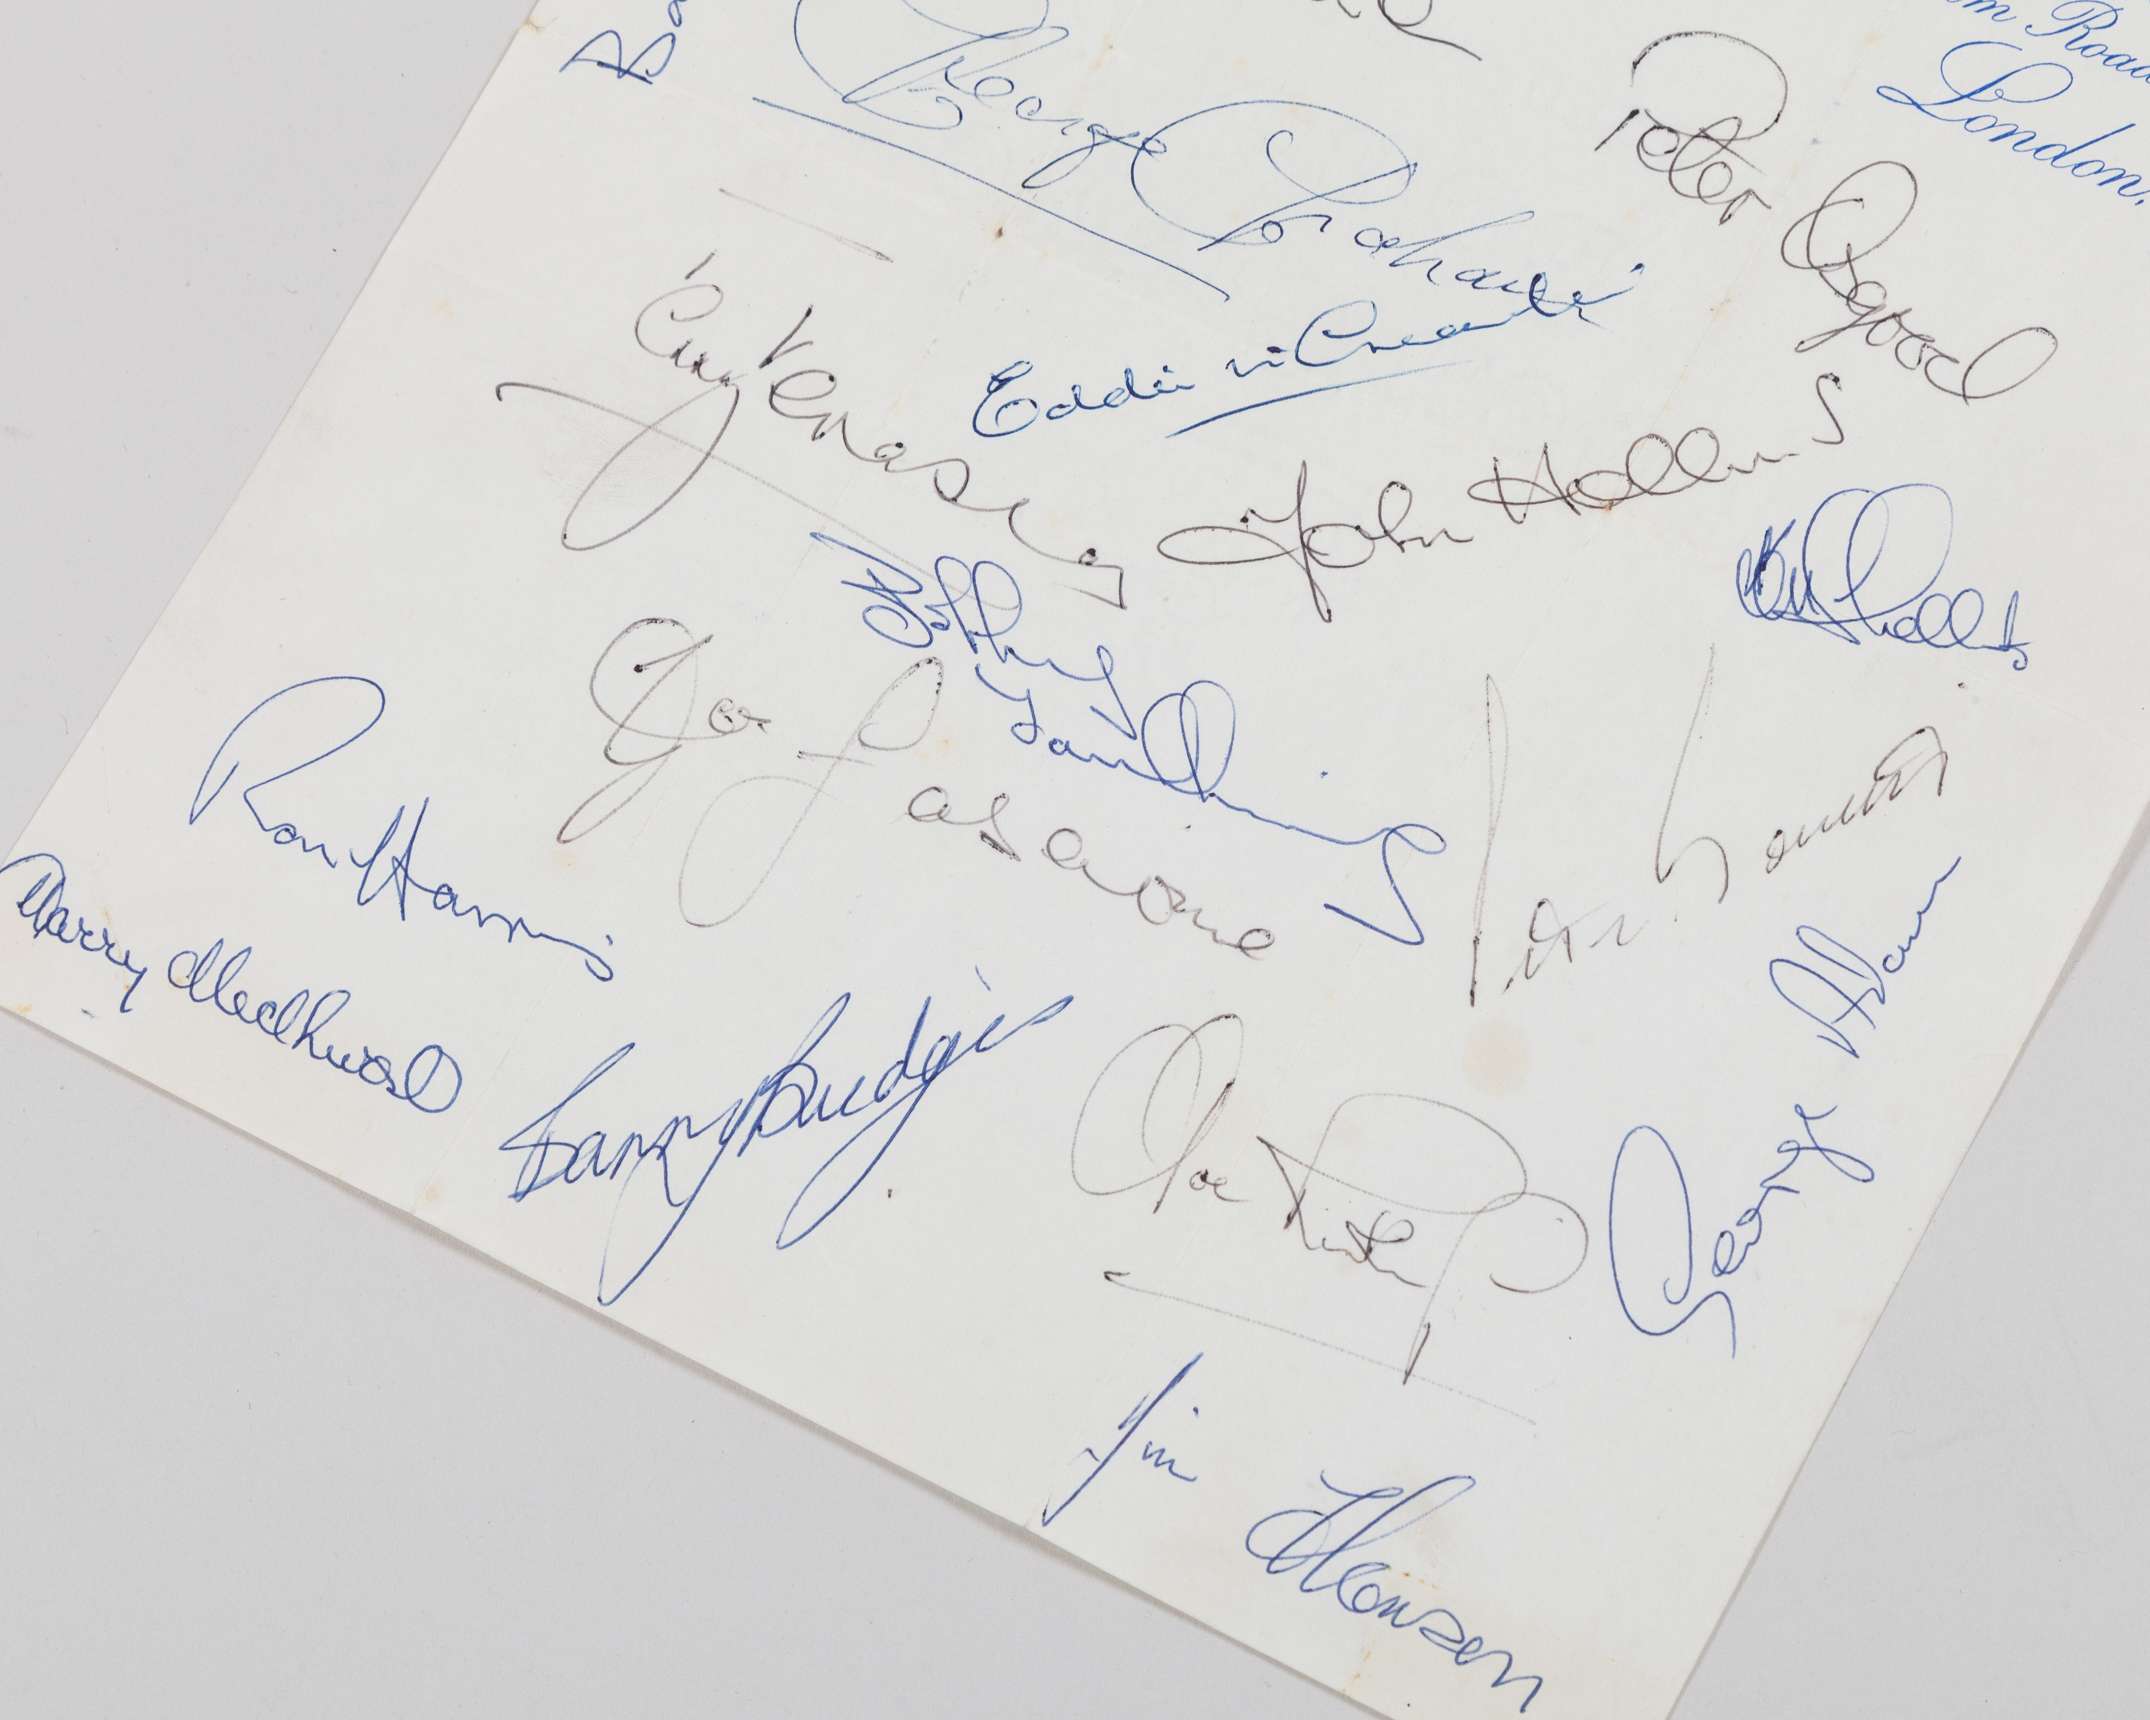 Road
London.
George Graham
Peter Osgood
Eddie McCreadie
John Hollins
Bobby
Tambling
Joe Fascione
Ron Harris
Harry Medhurst
Barry Bridges
Joe Kirkup
George Adam
Jim Thomson